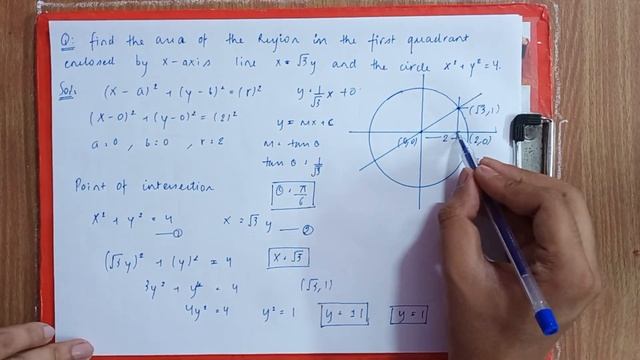 Q: find the area of the Region in the first quadrant
enclosed by x-axis line x = √3 y and the circle x² + y² = 4.
Sol: (x - a)² + (y - b)² = (r)²
y = 1/√3 x + 0
(x - 0)² + (y - 0)² = (2)²
y = mx + c
a = 0 , b = 0 , r = 2
m = tan θ
tan θ = 1/√3
θ = π/6
(√3, 1)
(0,0)
2
(2,0)
Point of intersection
x² + y² = 4 — ①
x = √3 y — ②
(√3 y)² + (y)² = 4
x = √3
3y² + y² = 4
(√3, 1)
4y² = 4
y² = 1
y = ±1
y = 1